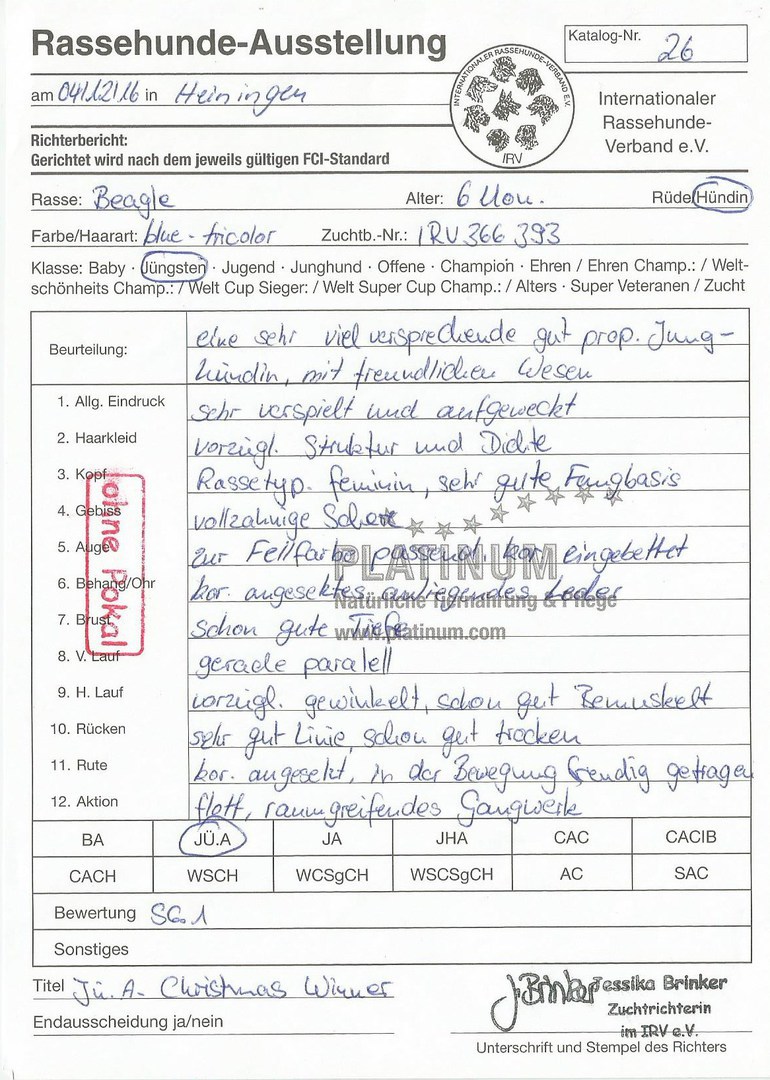 Rassehunde-Ausstellung
Katalog-Nr. 26
am 04/12/16 in Heiningen
INTERNATIONALER RASSEHUNDE-VERBAND E.V.
IRV
Internationaler
Rassehunde-
Verband e.V.
Richterbericht:
Gerichtet wird nach dem jeweils gültigen FCI-Standard
Rasse: Beagle Alter: 6 Mon. Rüde/Hündin
Farbe/Haarart: blue-tricolor Zuchtb.-Nr.: IRV 366 393
Klasse: Baby · Jüngsten · Jugend · Junghund · Offene · Champion · Ehren / Ehren Champ.: / Welt-
schönheits Champ.: / Welt Cup Sieger: / Welt Super Cup Champ.: / Alters · Super Veteranen / Zucht
Beurteilung: eine sehr viel versprechende gut prop. Jung-
hündin, mit freundlichen Wesen
1. Allg. Eindruck sehr verspielt und aufgeweckt
2. Haarkleid vorzügl. Struktur und Dichte
3. Kopf Rassetyp. feminin, sehr gute Fangbasis
4. Gebiss vollzahnige Schere
5. Auge zur Fellfarbe passend, kor. eingebettet
6. Behang/Ohr kor. angesektes anliegendes Leder
7. Brust schon gute Tiefe
8. V. Lauf gerade paralell
9. H. Lauf vorzügl. gewinkelt, schon gut Bemuskelt
10. Rücken sehr gut Linie, schon gut trocken
11. Rute kor. angesekt, in der Bewegung freudig getragen
12. Aktion flott, raumgreifendes Gangwerk
ohne Pokal
PLATINUM
Natürliche Ernährung & Pflege
www.platinum.com
BA JÜ.A JA JHA CAC CACIB
CACH WSCH WCSgCH WSCSgCH AC SAC
Bewertung SG1
Sonstiges
Titel Jü.A- Christmas Winner
Endausscheidung ja/nein
J. Brinker
Jessika Brinker
Zuchtrichterin
im IRV e.V.
Unterschrift und Stempel des Richters